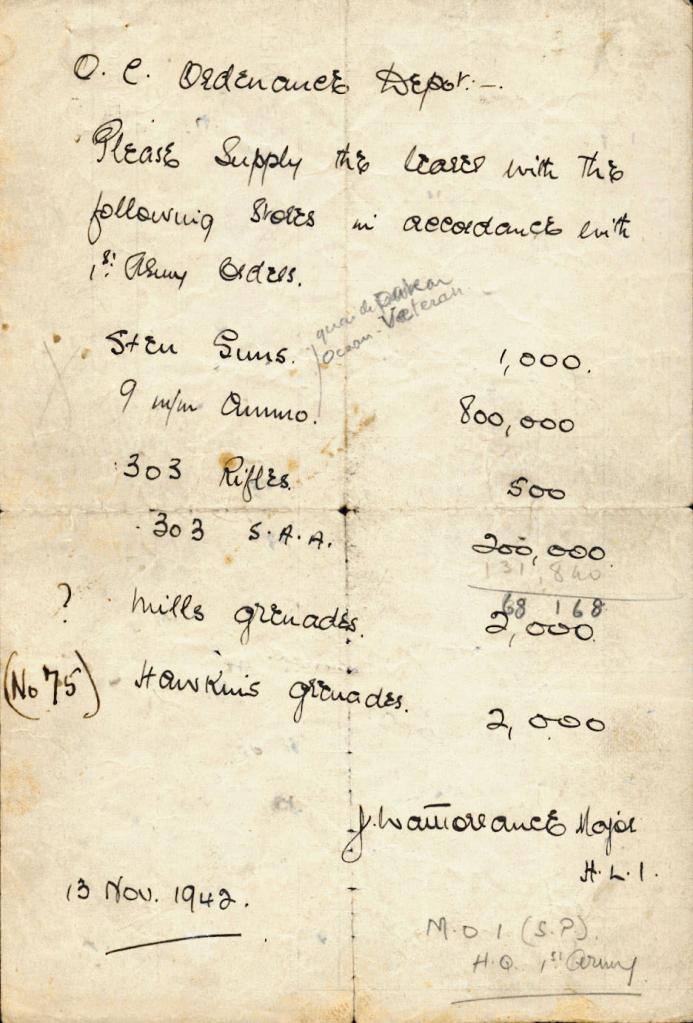 O. C. Ordenance Depot:-
Please Supply the bearer with the
following Stores in accordance with
1st Army Orders.
quai de
Ocean Veteran
Sten Guns. 1,000.
9 m/m Ammo. 800,000
303 Rifles. 500
.303 S.A.A. 200,000
131,840
68 168
? Mills grenades. 2,000
(No 75) Hawkins grenades. 2,000
Major
H.L.I.
13 Nov. 1942.
M.O 1 (S.P).
H.Q. 1st Army